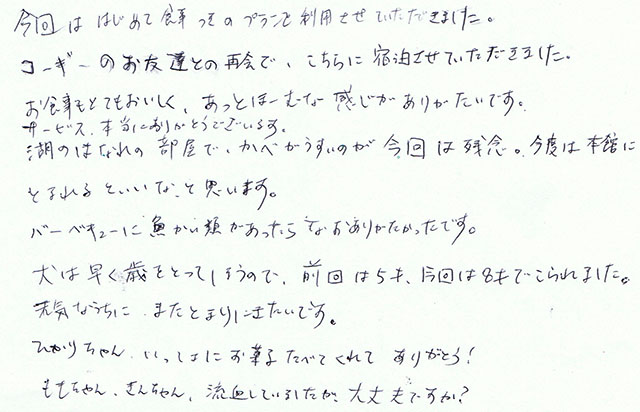 今回は はじめて食事つきのプランを利用させていただきました。
コーギーのお友達との再会で、こちらに宿泊させていただきました。
お食事もとてもおいしく、あっとほーむな感じがありがたいです。
サービス、本当にありがとうございます。
湖のはなれの部屋で、かべがうすいのが今回は残念。今度は本館に
とまれるといいな、と思います。
バーベキューに魚かい類があったらなおありがたかったです。
犬は早く歳をとってしまうので、前回は5才、今回は8才でこられました。
元気なうちに、またとまりにきたいです。
ひかりちゃん、いっしょにお菓子たべてくれて ありがとう!
ももちゃん、きんちゃん、流血していましたが、大丈夫ですか?